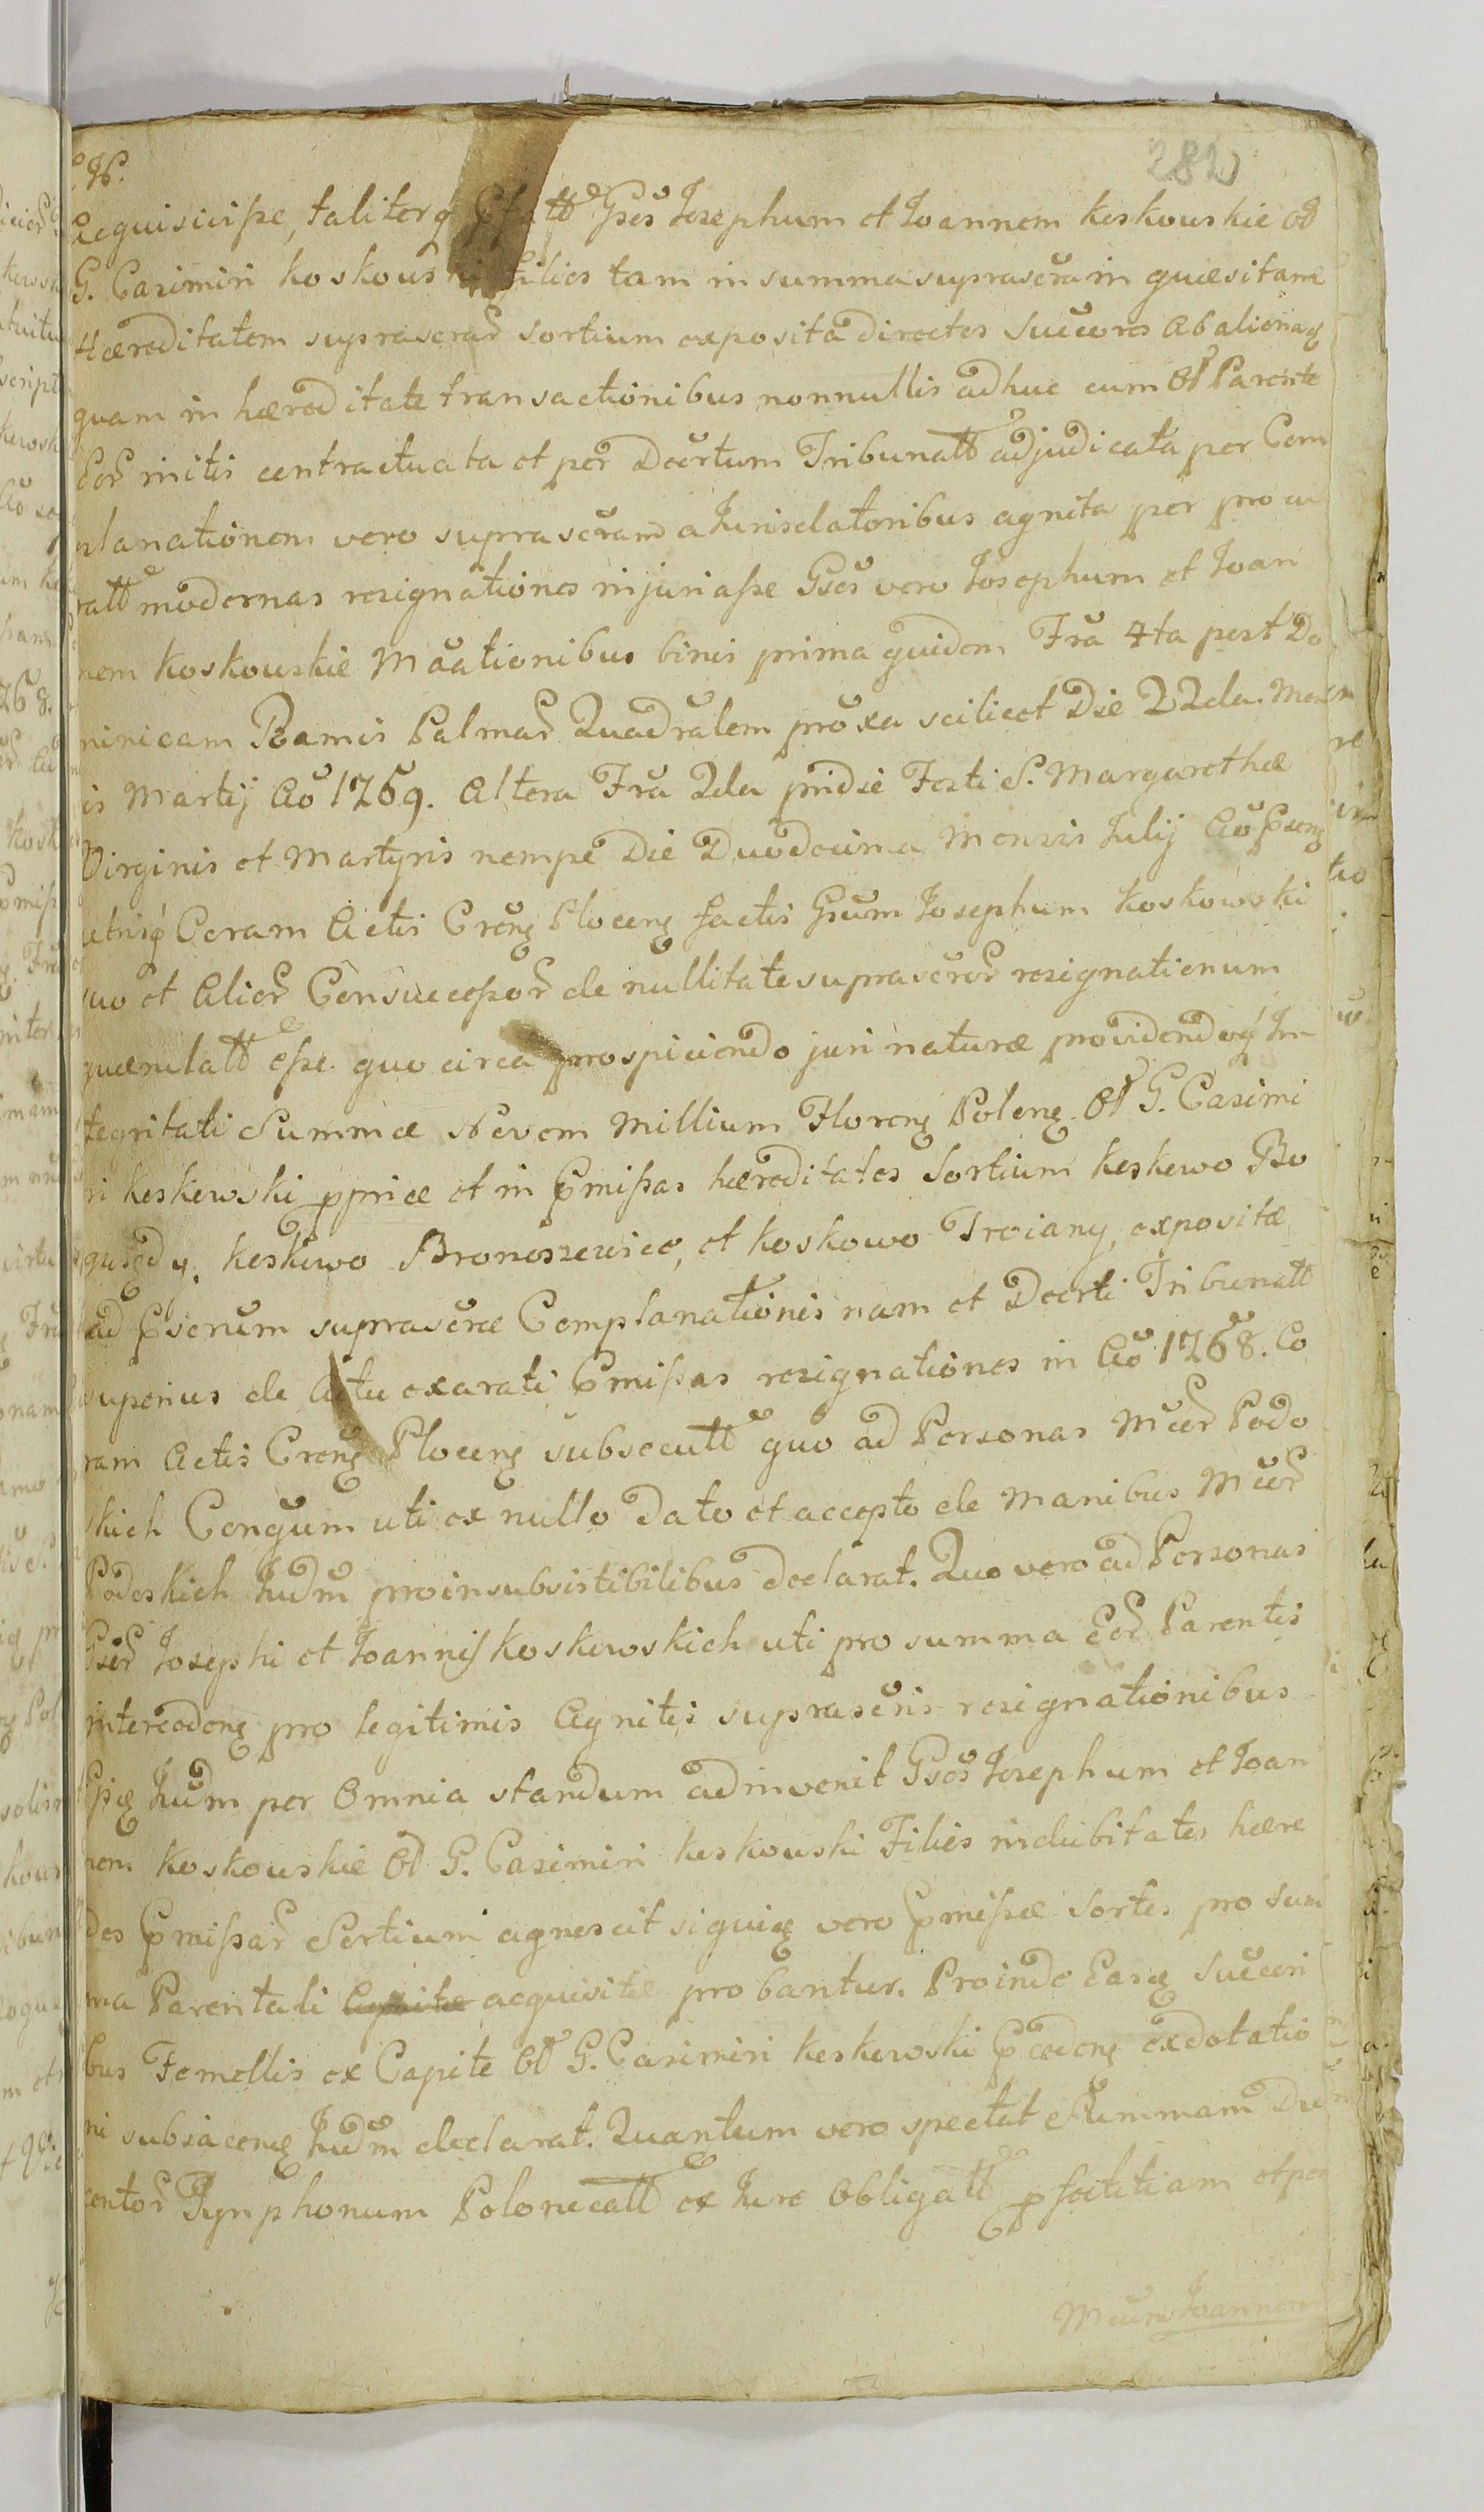 282
Acquisivisse, taliterq Gsos Josephum et Joannem Koskowskie Ol
G. Casimiri Koskowski Filios tam in summa suprascra in quæsitam
Hæreditatem suprascrar Sortium exposita directos Succores Abalienaꝫ
quam in hæreditate transactionibus nonnullis adhuc cum Ol Parente
Eor initis contractuata et per Decrtum Tribunatt adjudicata per Com
planationem vero suprascram a Jurisdatoribus agnita per pro ut
ratt modernas resignationes injuriasse Gsos vero Josephum et Joan
nem Koskowskie Maationibus binis prima quidem Fra 4ta post Do
minicam Ramis Palmar Quadralem proxa scilicet Die 22da Men
is Martij Ao 1769. Altera Fra 2da pridie Festi S. Margarethæ
Virginis et Martyris nempe Die Duodecima Mensis Julij Ao
utrisq Coram Actis Crens Plocens factis Gsum Josephum Koskowski
suo et Alior Consuccessor de nullitate suprascrar resignationum
quærulatt esse. quo circa prospiciendo juri naturæ providendoq In
tegritati Summæ Novem Millium Florenꝫ Polonꝫ Ol G. Casimi
ri Koskowski ppriæ et in Præmissas hæreditates Sortium Koskowo Bo
gusędy, Koskowo Bronoszewice, et Koskowo Troiany, expositæ
ad Pserum suprascræ Complanationis nam et Decrti Tribunatt
superius de Actu exarati Præmissas resignationes in Ao 1768. Co
ram Actis Crenꝫ Plocenꝫ subsecutt quo ad Personas Mcor Podo
skich Congum uti ex nullo Dato et accepto de Manibus Mcor
Podoskich Judm pro insubsistibilibus declarat. Quo vero ad Personas
Gsor Josephi et Joannis Koskowskich uti pro summa Eor Parentis
intercedenꝫ pro legitimis Agnitis suprascris resignationibus
Ipsis Judm per Omnia standum adinvenit Gsos Josephum et Joan
nem Koskowskie Ol G. Casimiri Koskowski Filios indubitatos hære
des Præmissar Sortium agnoscit siquis vero Præmissæ Sortes pro Sum
ma Parentali acquisitæ probantur. Proinde Eas Succori
bus Femellis ex Capite Ol G. Casimiri Koskowski Præcedenꝫ exdotatio
ni subjacenꝫ Judm declarat. Quantum vero spectat Summam Du
centor Tynphonum Polonicatt ex Jure Obligatt p factitiam et per
Mcum Joannem